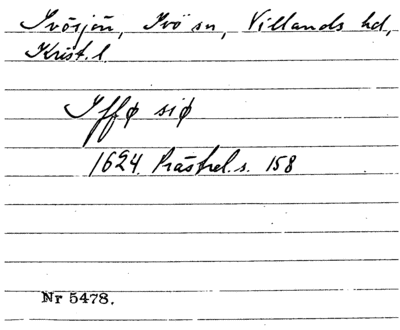 Ivösjön, Ivö sn, Villands hd,
Krist. l.
Iffø siø
1624. Prästrel. s. 158
Nr 5478.